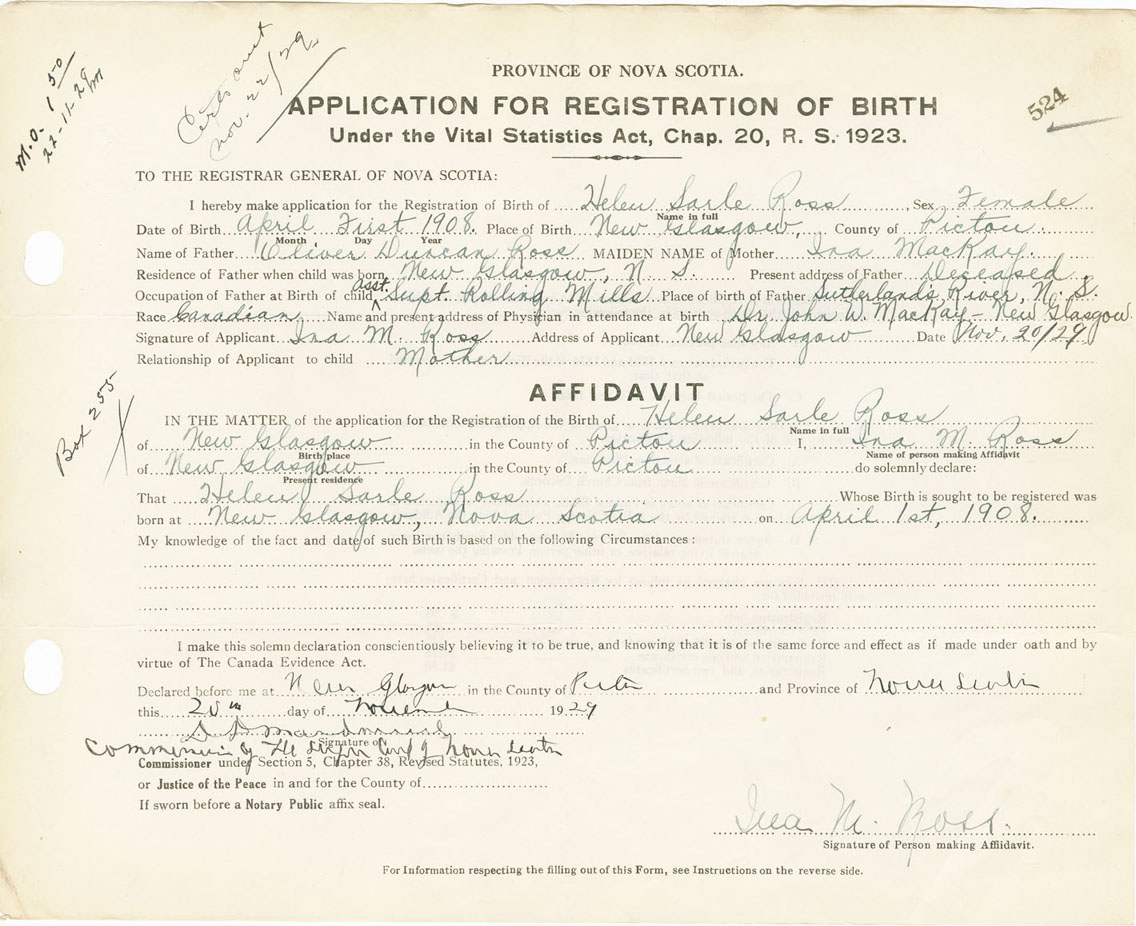 M.O. 1 50
22-11-29
Certs out
Nov. 22/29
PROVINCE OF NOVA SCOTIA.
524
APPLICATION FOR REGISTRATION OF BIRTH
Under the Vital Statistics Act, Chap. 20, R. S. 1923.
TO THE REGISTRAR GENERAL OF NOVA SCOTIA:
I hereby make application for the Registration of Birth of Helen Sarle Ross Sex Female
Name in full
Date of Birth April First 1908. Place of Birth New Glasgow, County of Pictou
Month Day Year
Name of Father Oliver Duncan Ross MAIDEN NAME of Mother Ina MacKay.
Residence of Father when child was born New Glasgow, N. S. Present address of Father Deceased
Occupation of Father at Birth of child Asst. Supt. Rolling Mills Place of birth of Father Sutherland's River, N. S.
Race Canadian Name and present address of Physician in attendance at birth Dr. John W. MacKay - New Glasgow.
Signature of Applicant Ina M. Ross Address of Applicant New Glasgow Date Nov. 20/29.
Relationship of Applicant to child Mother
AFFIDAVIT
Box 255
IN THE MATTER of the application for the Registration of the Birth of Helen Sarle Ross
Name in full
of New Glasgow in the County of Pictou I, Ina M. Ross
Birth place Name of person making Affidavit
of New Glasgow in the County of Pictou do solemnly declare:
Present residence
That Helen Sarle Ross Whose Birth is sought to be registered was
born at New Glasgow, Nova Scotia on April 1st, 1908.
My knowledge of the fact and date of such Birth is based on the following Circumstances :
I make this solemn declaration conscientiously believing it to be true, and knowing that it is of the same force and effect as if made under oath and by
virtue of The Canada Evidence Act.
Declared before me at New Glasgow in the County of Pictou and Province of Nova Scotia
this 20th day of November 1929
Signature of
Commissioner of The Supreme Court of Nova Scotia
Commissioner under Section 5, Chapter 38, Revised Statutes, 1923,
or Justice of the Peace in and for the County of
If sworn before a Notary Public affix seal.
Ina M. Ross.
Signature of Person making Affidavit.
For Information respecting the filling out of this Form, see Instructions on the reverse side.